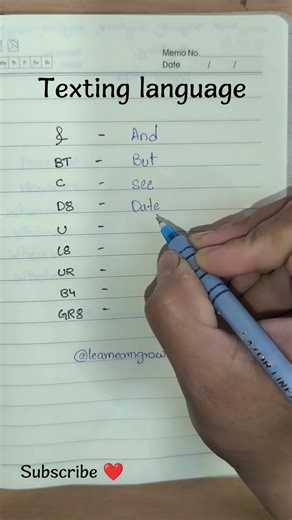 Memo No.
Date / /
Texting language
& - And
BT - But
C - See
D8 - Date
U -
L8 -
UR -
B4 -
GR8 -
@learnearngrow
Subscribe ❤️